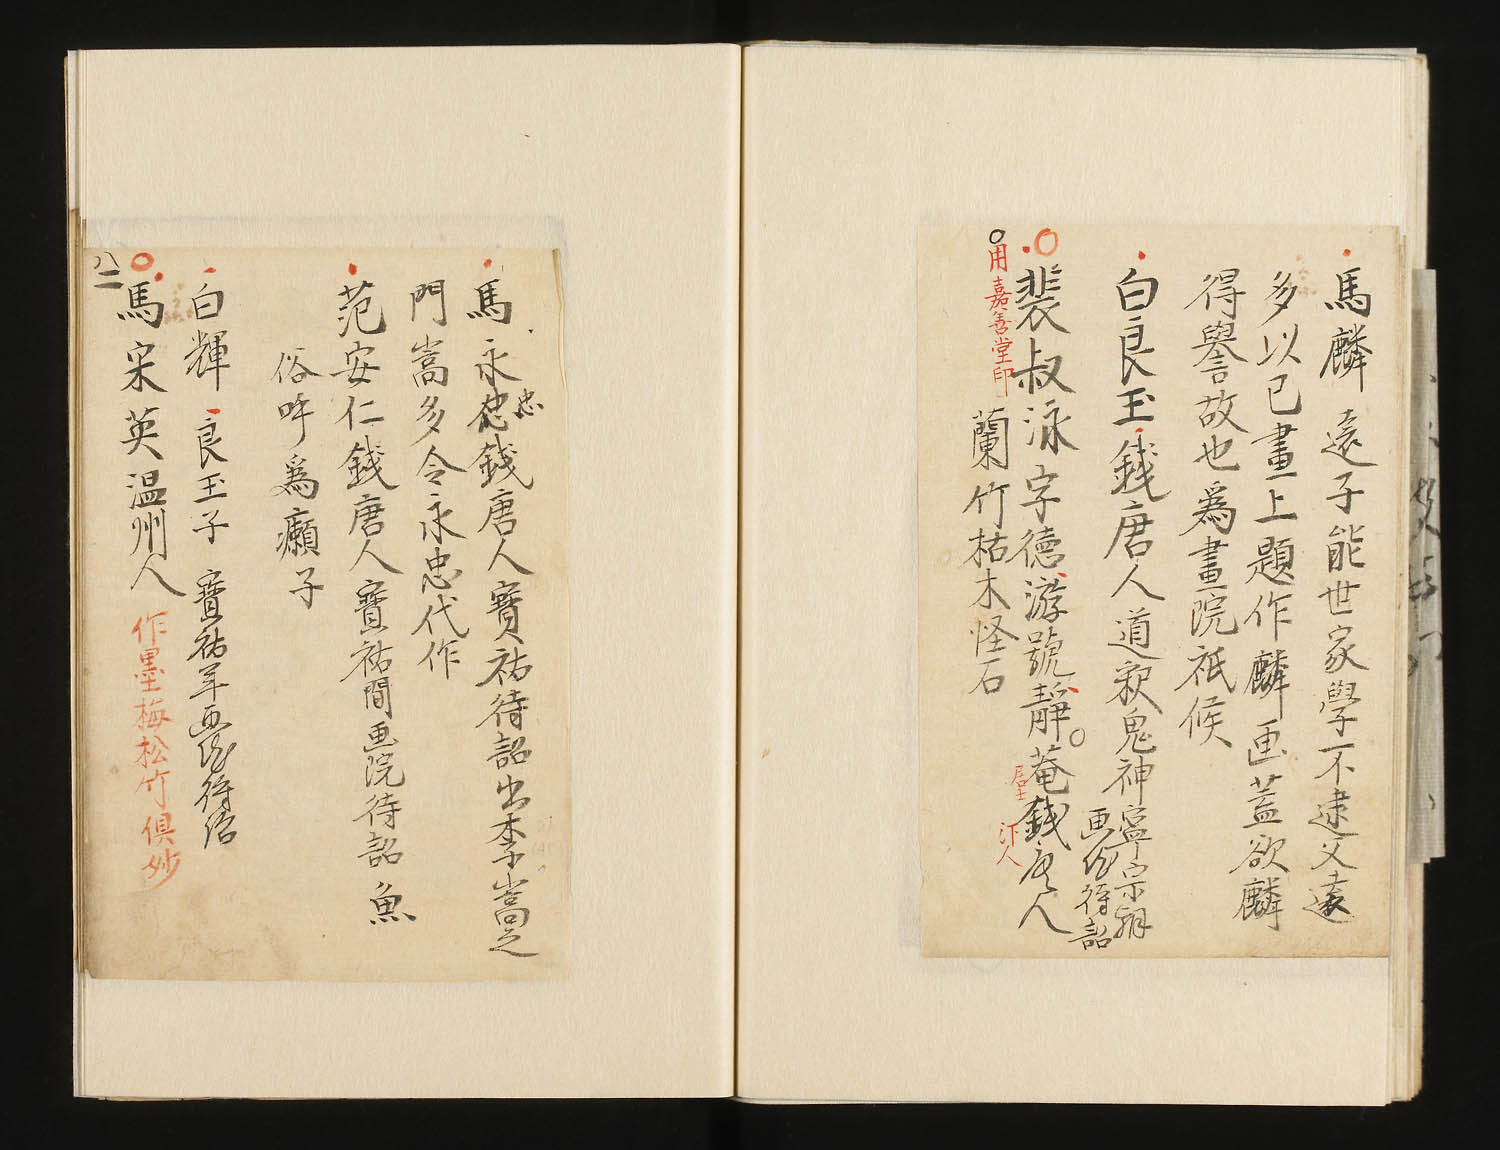 馬麟 遠子能世家學不逮父遠
多以己畫上題作麟画蓋欲麟
得譽故也為畫院祗候
白良玉錢唐人道釈鬼神寧宗朝
画院待詔
裴叔泳字德游號靜菴錢唐人
居士 汴人
用嘉善堂印
蘭竹枯木怪石
馬永忠錢唐人寶祐待詔出李嵩之
忠
門嵩多令永忠代作
范安仁錢唐人寶祐間画院待詔 魚
俗呼為癩子
白輝 良玉子 寶祐年画院待诏
馬宋英温州人 作墨梅松竹俱妙
八二